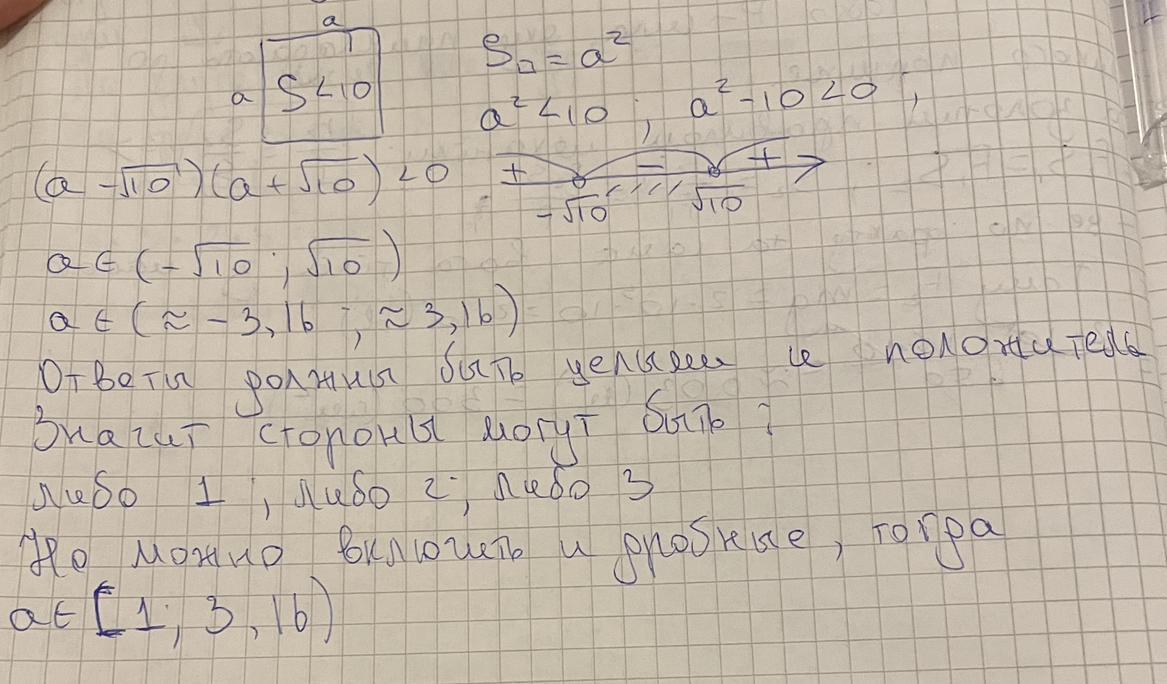 a
a S<10
S□ = a²
a² < 10 ; a² - 10 < 0 ;
(a - √10)(a + √10) < 0
+ - +
-√10 √10
a ∈ (-√10 ; √10)
a ∈ (≈ -3,16 ; ≈ 3,16)
Ответы должны быть целыми и положитель
Значит стороны могут быть :
либо 1 ; либо 2 ; либо 3
Но можно включить и дробные, тогда
a ∈ [1 ; 3,16)